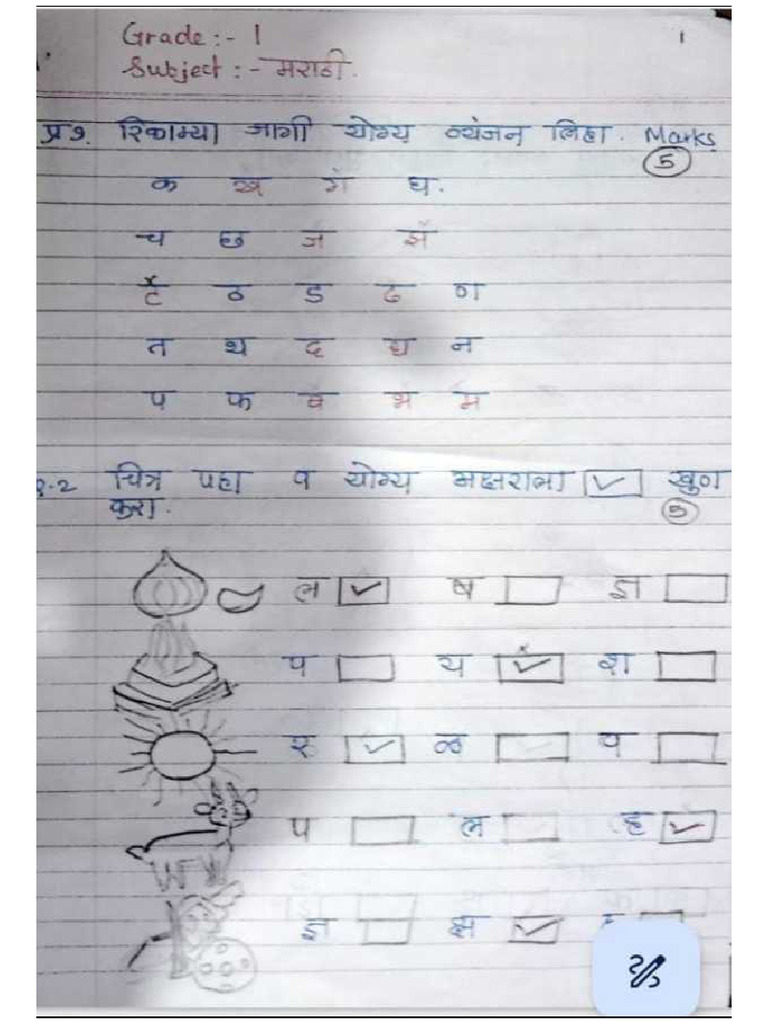 Grade :- 1
1
Subject :- मराठी.
प्र १. रिकाम्या जागी योग्य व्यंजन लिहा. Marks
5
क ख ग घ.
च छ ज झ
ट ठ ड ढ ण
त थ द ध न
प फ ब भ म
प्र.2 चित्र पहा व योग्य अक्षराला ✓ खुण
करा. 5
ल ✓ ष ज्ञ
प य ✓ श
र ✓ ळ व
प ल ह ✓
ज्ञ क्ष ✓